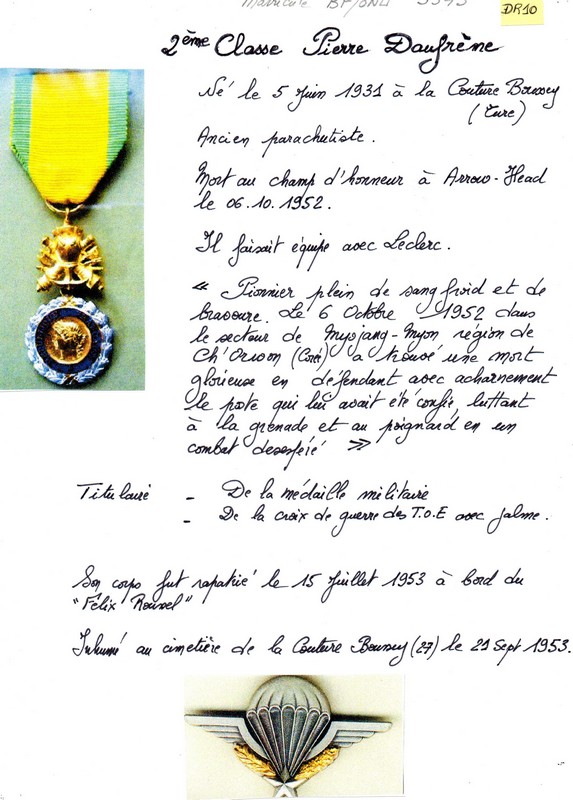 Matricule BF/ONU 5545
DR10
2ème Classe Pierre Daufrène
Né le 5 Juin 1931 à la Couture Boussey
(Eure)
Ancien parachutiste.
Mort au champ d'honneur à Arrow-Head
le 06.10.1952.
Il faisait équipe avec Leclerc.
« Pionnier plein de sang froid et de
bravoure. Le 6 Octobre 1952 dans
le secteur de Myojang-Myon région de
Ch'Orwon (Corée) a trouvé une mort
glorieuse en défendant avec acharnement
le poste qui lui avait été confié, luttant
à la grenade et au poignard en un
combat desespéré »
Titulaire - De la médaille militaire
- De la croix de guerre des T.O.E avec palme.
Son corps fut rapatrié le 15 Juillet 1953 à bord du
"Félix Roussel"
Inhumé au cimetière de la Couture Boussey (27) le 21 Sept 1953.